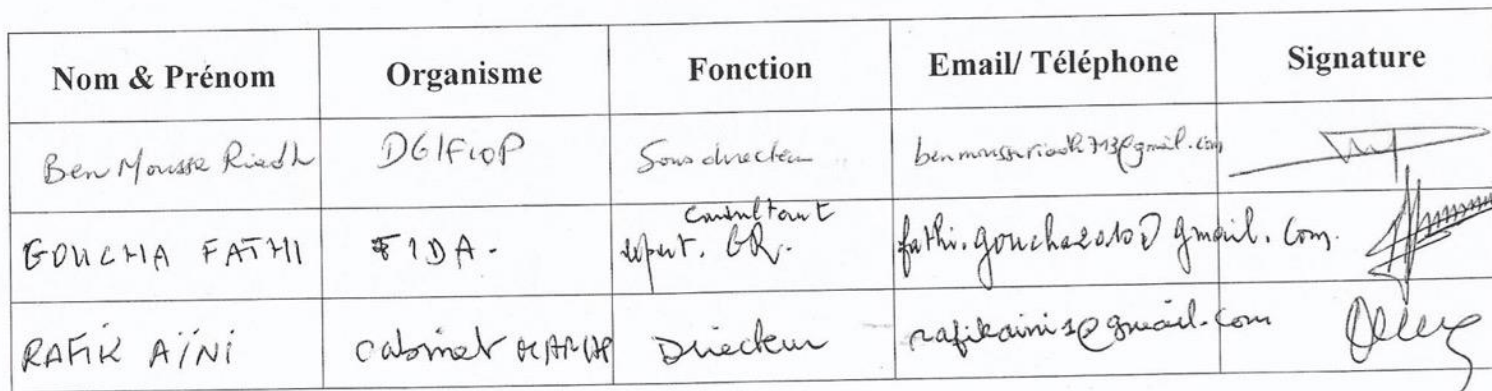 Nom & Prénom Organisme Fonction Email/ Téléphone Signature
Ben Mousse Riadh DG/FIOP Sous directeur
GOUCHA FATHI FIDA. consultant expert. GR. fathi.goucha2010@gmail.com.
RAFIK AÏNI Cabinet Directeur rafikaini1@gmail.com